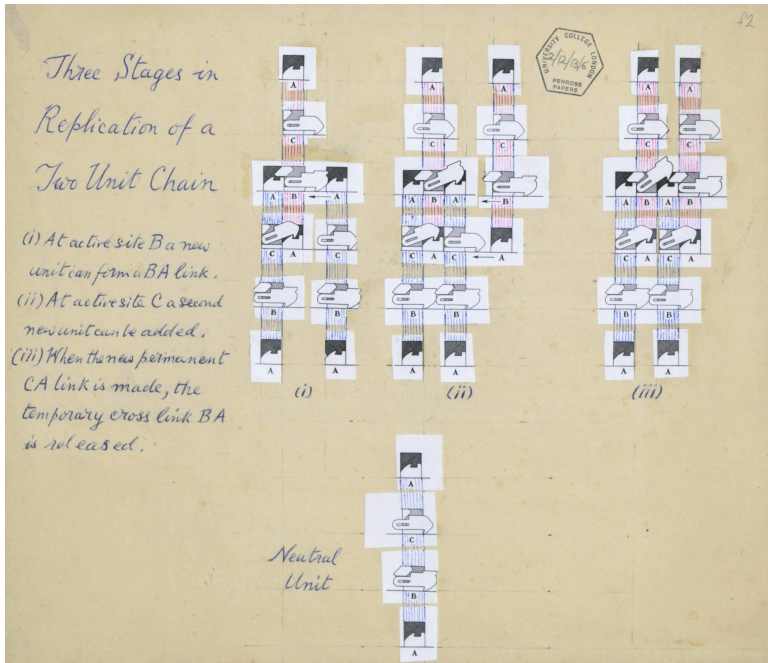 Three Stages in
Replication of a
Two Unit Chain
(i) At active site B a new
unit can form a BA link.
(ii) At active site C a second
new unit can be added.
(iii) When the new permanent
CA link is made, the
temporary cross link BA
is released.
f2
UNIVERSITY COLLEGE LONDON
2/12/13/6
PENROSE
PAPERS
A
C
A B A
C A C
B B
A A
(i)
A A
C C
A B A B
C A C A
B B
A A
(ii)
A A
C C
A B A B
C A C A
B B
A A
(iii)
Neutral
Unit
A
C
B
A